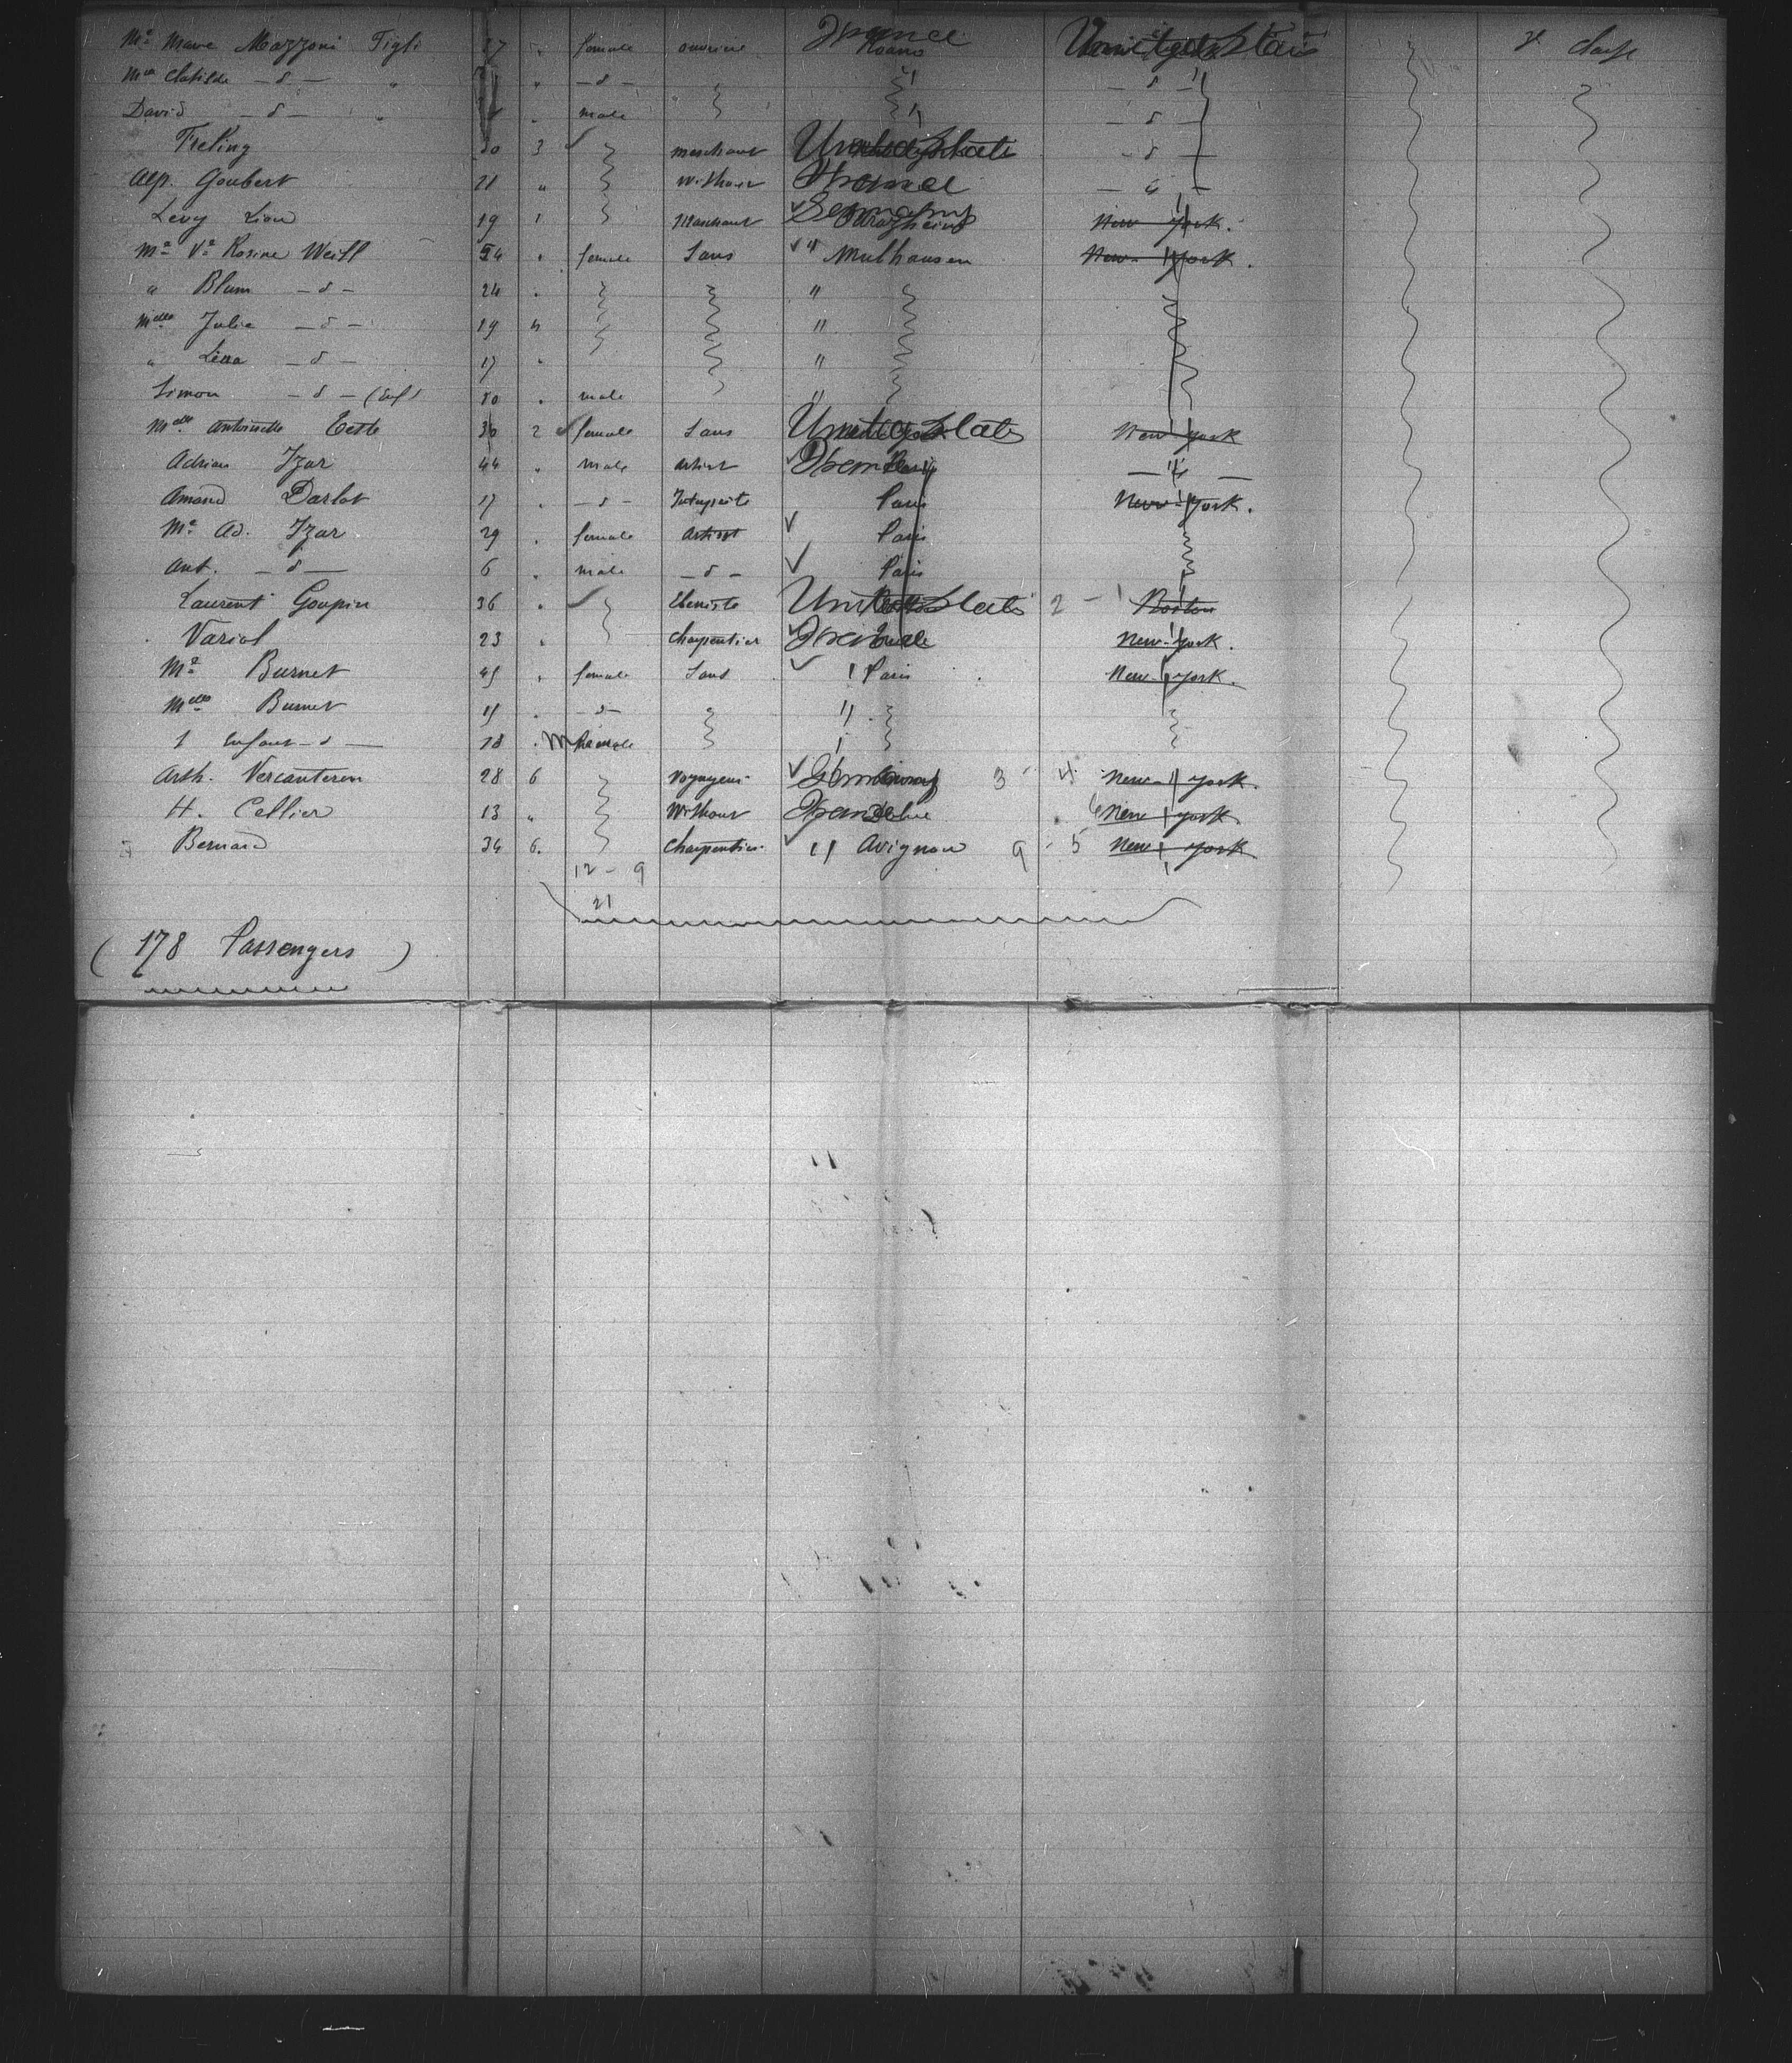 Me Marie Mazzoni Tigli 27 " female ouvrière France United States 2e classe
Mlle Clotilde — d — " " — d — " " — d —
David — d — " " male " — d —
Freling 30 3 merchant United States — d —
Alp. Goubert 21 " Without France — d —
Levy Lion 19 1 Marchant Germany New York.
Me Ve Rosine Weill 54 " female Sans " Mulhausen New-York.
" Blum — d — 24 " "
Melle Julie — d — 19 " "
" Léna — d — 17 " "
Simon — d — (Enft 10 " male "
Melle Antoinette Teste 30 2 female Sans United States New York
Adrien Izar 44 " male Artist France Paris — " —
Amand Darlot 17 " — d — Interprète Paris New-York.
Me Ad. Izar 29 " female Artist Paris
Ant. — d — 6 " male — d — Paris
Laurent Goupin 36 " Ebeniste United States 2 - 1 Boston
Variol 23 " Charpentier France New-York.
Me Burnet 45 " female Sans " Paris New-York.
Melle Burnet 11 " — d — "
1 Enfant — d — 18 " "
Arth. Vercauteren 28 6 Voyageur Germany 3 - 4 New-York.
H. Cellier 13 " Without France New York
Bernard 34 6. Charpentier " Avignon 9 - 5 New York
12 - 9
21
( 178 Passengers )